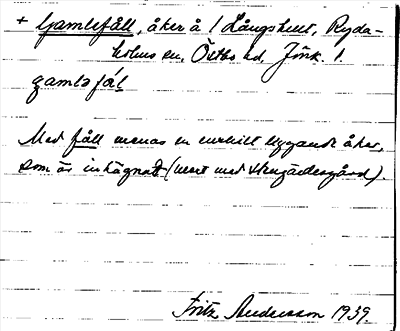 + Gamlefåll, åker å 1 Långshult, Ryda-
holms sn, Östbo hd, Jönk. l.
gamləfål
Med fåll menas en enskilt liggande åker,
som är inhägnat (mest med stengärdesgård).
Fritz Andersson 1939.